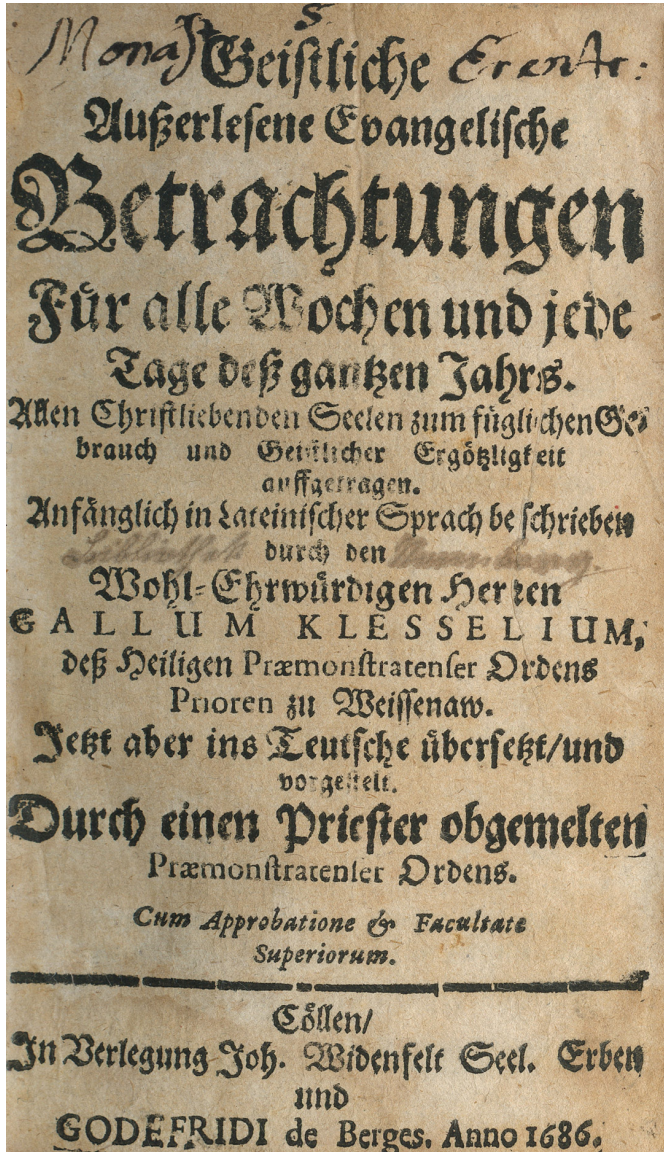 Monast S Geistliche Erentr:
Außerlesene Evangelische
Betrachtungen
Für alle Wochen und jede
Tage deß gantzen Jahrs.
Allen Christliebenden Seelen zum füglichen Ge-
brauch und Geistlicher Ergötzligkeit
auffgetragen.
Anfänglich in Lateinischer Sprach beschrieben
durch den
Wohl-Ehrwürdigen Herren
GALLUM KLESSELIUM,
deß Heiligen Præmonstratenser Ordens
Prioren zu Weissenaw.
Jetzt aber ins Teutsche übersetzt/und
vorgestelt.
Durch einen Priester obgemelten
Præmonstratenser Ordens.
Cum Approbatione & Facultate
Superiorum.
Cöllen/
In Verlegung Joh. Widenfelt Seel. Erben
und
GODEFRIDI de Berges. Anno 1686.